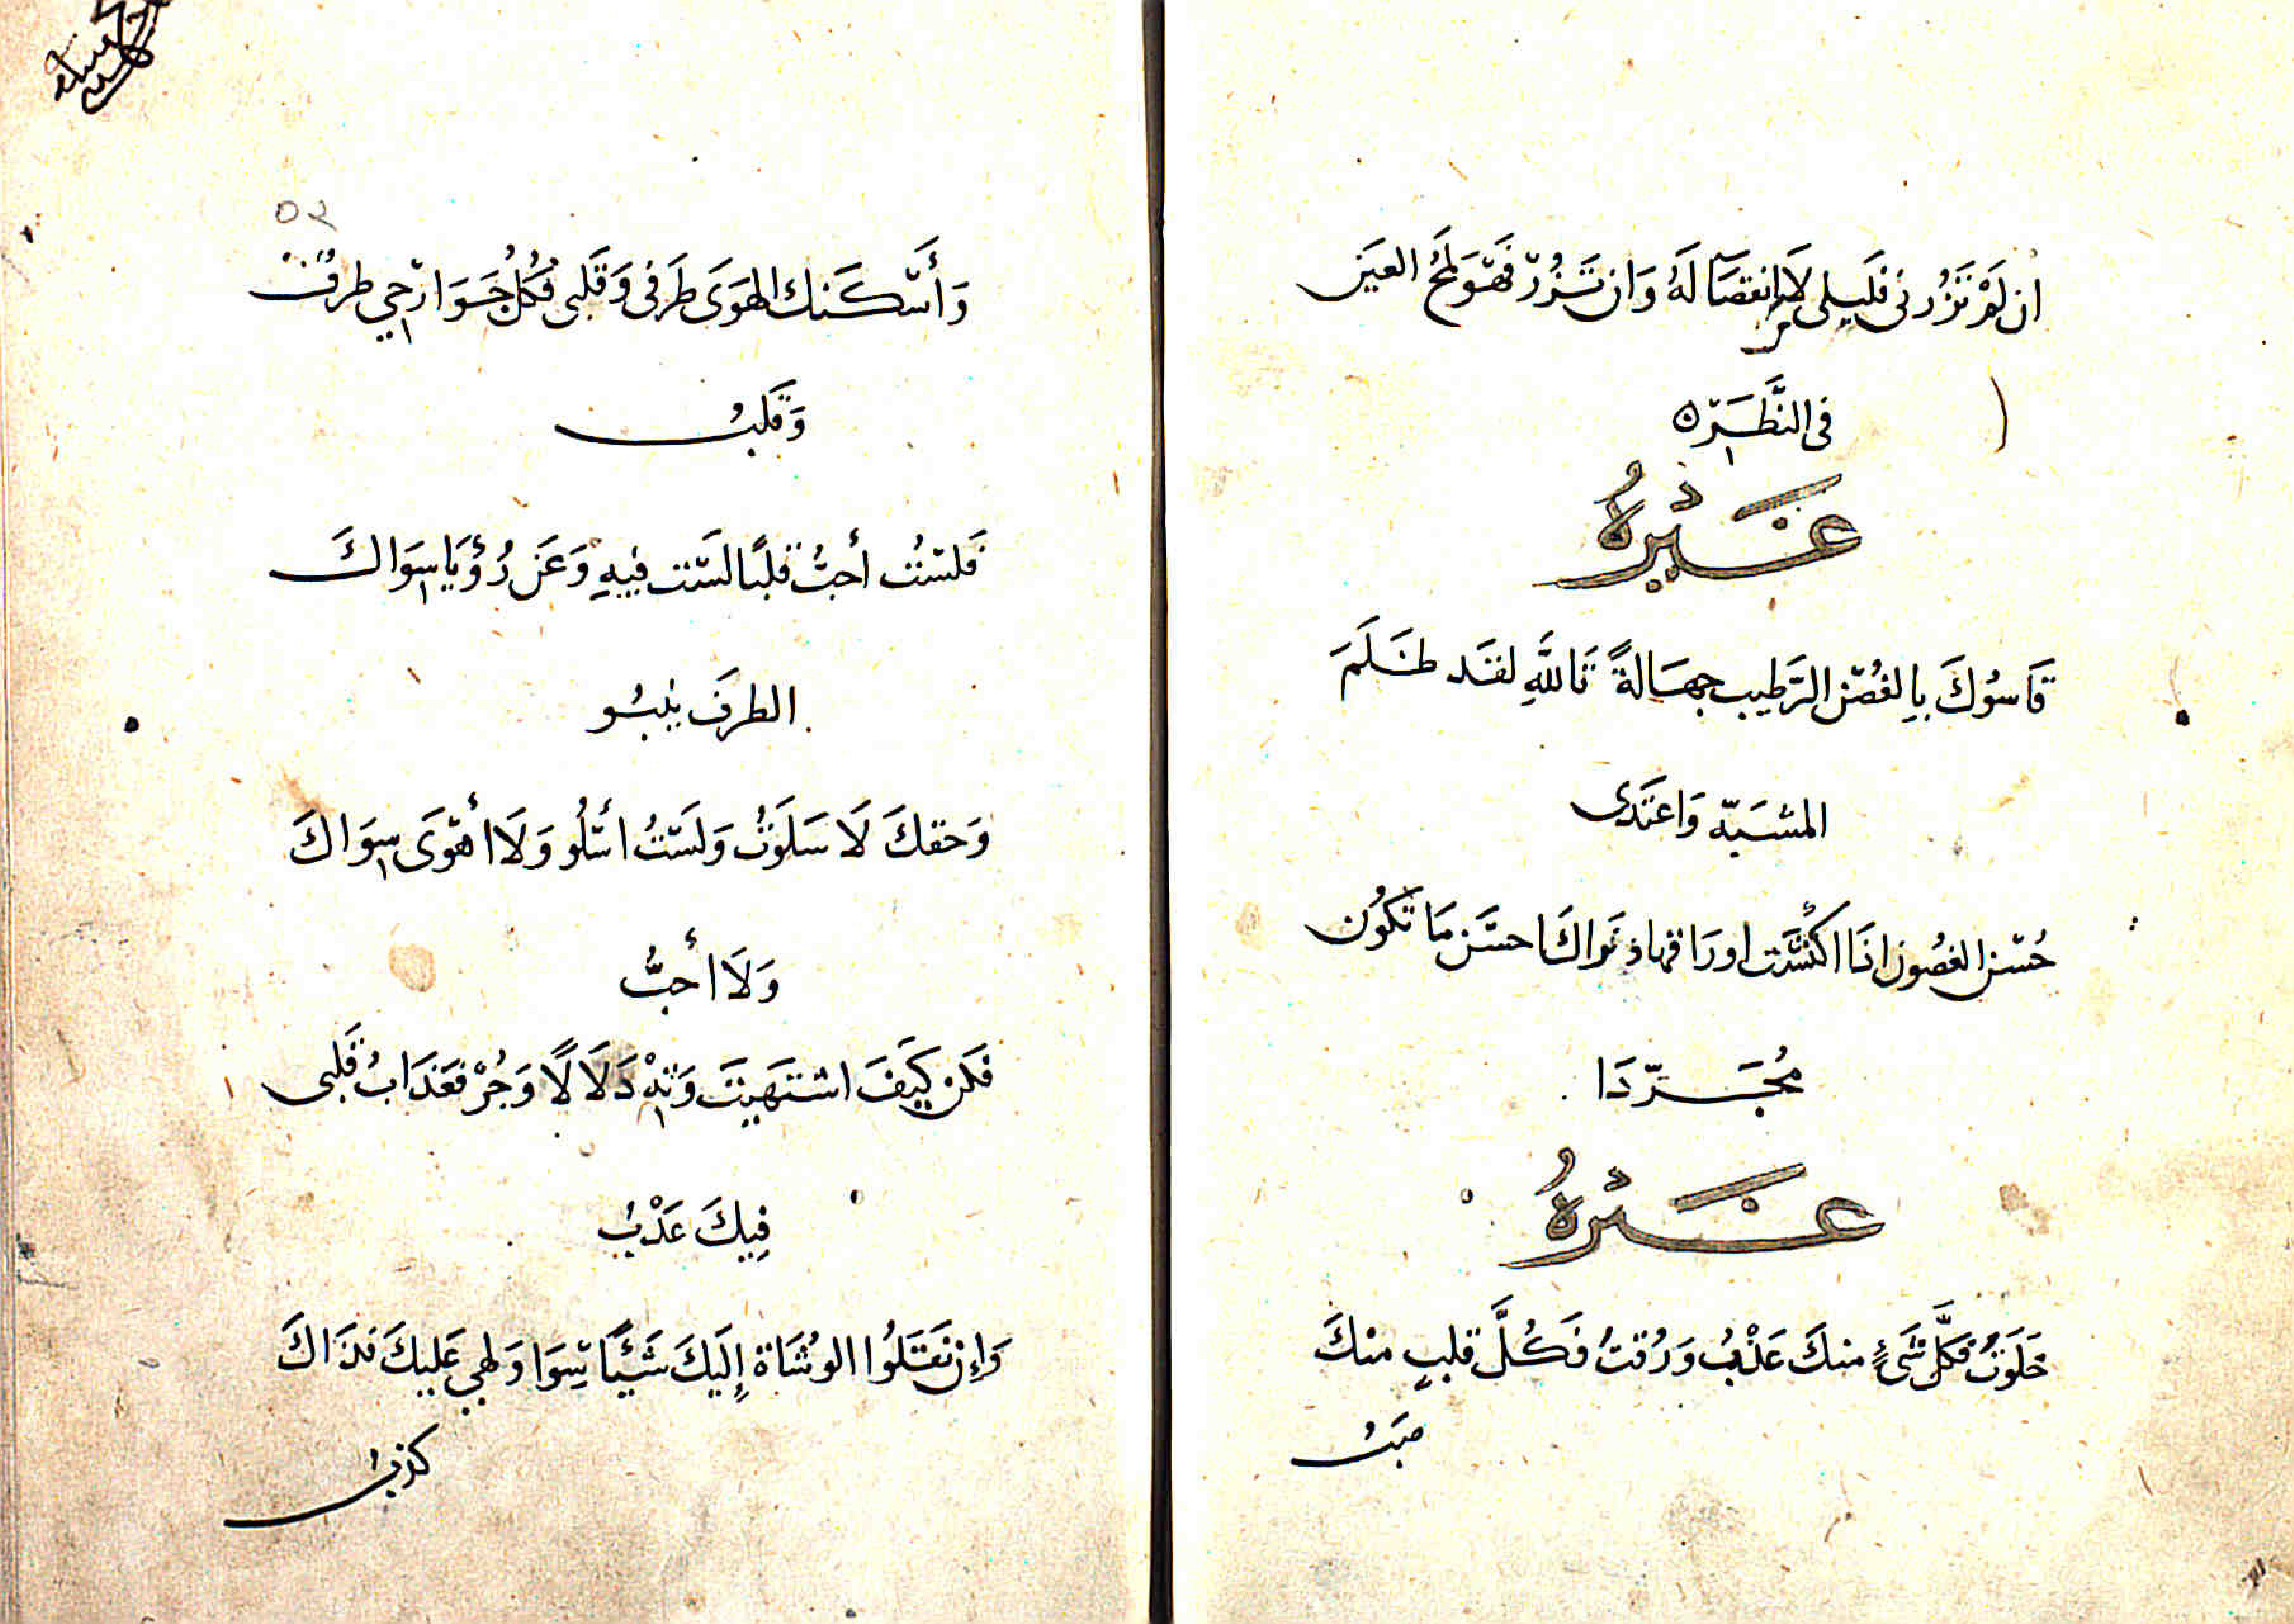 ان لَمْ تَزُرنى فَلَيلى لَا انقصَا لَهُ وَان تَزُرْ فَهْوَ لَمحُ العَين
فى النَّظَرَه
غَيْرُهُ
قَاسُوكَ بِالغُصْن الرَّطِيب جهَالةً تَاللَّهِ لقَد ظَلَمَ
المشَبّه وَاعتَدَى
حُسْن الغصُون اذَا اكْتسَت اورَاقها ونَراكَ احسَن مَا تَكوُن
مُجَرّدَا
غَيْرُهُ
حَلَوتَ فَكلّ شَىءٍ منكَ عَذْبُ وَرُقتَ فَكُلَّ قلبٍ منكَ
صَبُّ
٥٢
وَأَسْكَنك الهَوَى طَرَفى وَقَلبى فَكُلُّ جَوَارحِي طرفٌ
وَقَلبُ
فَلسْتُ أحبُّ قَلبًا لَسْت فيهِ وَعَن رُؤيَا سِوَاكَ
الطرفَ يَنبُو
وَحَقكَ لَا سَلَوتُ وَلَسْتُ اسْلُو وَلَا أهْوَى سِوَاكَ
وَلَا أحبُّ
فَكن كَيفَ اشتَهَيتَ وَتِهْ دَلَالًا وَجُرْ فَعَذَابُ قَلبى
فِيكَ عَذْبُ
وَإِن نَقَلُوا الوُشَاة إِلَيكَ شَيئًا سِوَا وَلَهِي عَلَيكَ فَذَاكَ
كذبُ